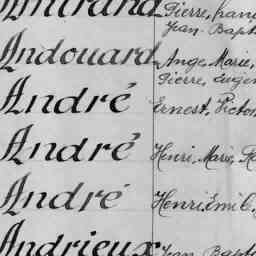 Pierre, Fran
Jean-Bapt
Andouard Ange, Marie,
Pierre, Eugèn
André Ernest, Victor
André Henri, Marie,
André Henri, Emile,
Andrieux Jean Bapt